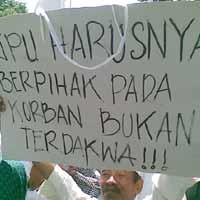 JPU HARUSNYA
BERPIHAK PADA
KURBAN BUKAN
TERDAKWA!!!